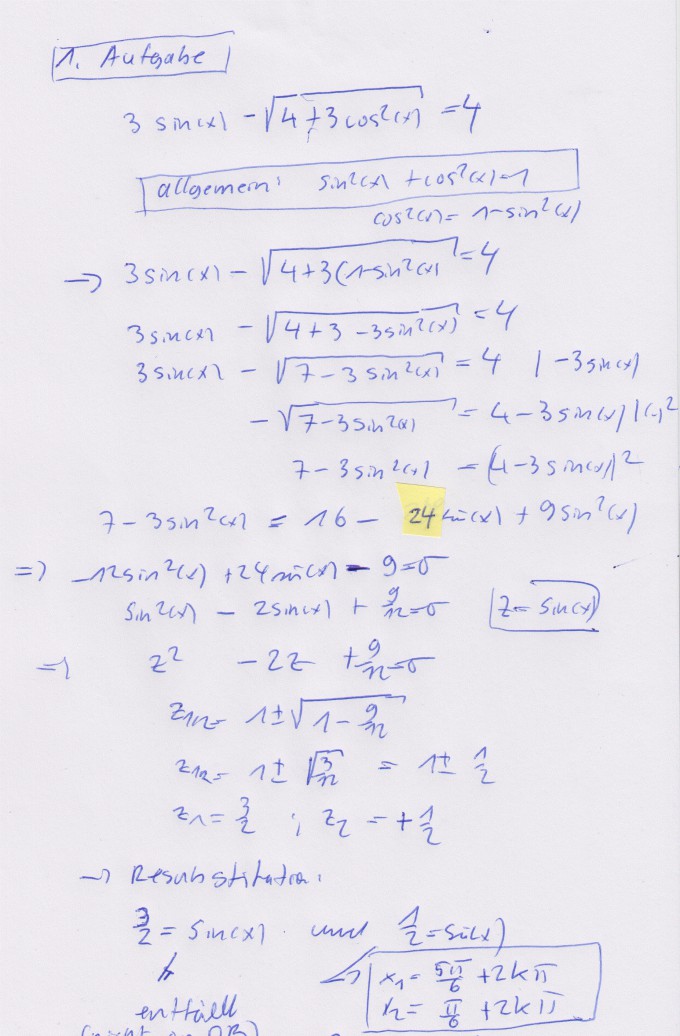 1. Aufgabe
3 sin(x) - √(4+3cos²(x)) = 4
allgemein: sin²(x) + cos²(x)=1
cos²(x) = 1-sin²(x)
→ 3sin(x) - √(4+3(1-sin²(x)) = 4
3sin(x) - √(4+3-3sin²(x)) = 4
3sin(x) - √(7-3sin²(x)) = 4 | -3sin(x)
-√(7-3sin²(x)) = 4-3sin(x) | ( )²
7-3sin²(x) = (4-3sin(x))²
7-3sin²(x) = 16 - 24 sin(x) + 9sin²(x)
⇒ -12sin²(x) + 24sin(x) - 9=0
sin²(x) - 2sin(x) + 9/12=0 z= sin(x)
⇒ z² - 2z + 9/12=0
z1/2= 1±√(1-9/12)
z1/2= 1±√(3/12) = 1± 1/2
z1= 3/2 ; z2 = +1/2
→ Resubstitution:
3/2 = sin(x) und 1/2=sin(x)
x1= 5π/6 +2kπ
x2= π/6 +2kπ
entfällt